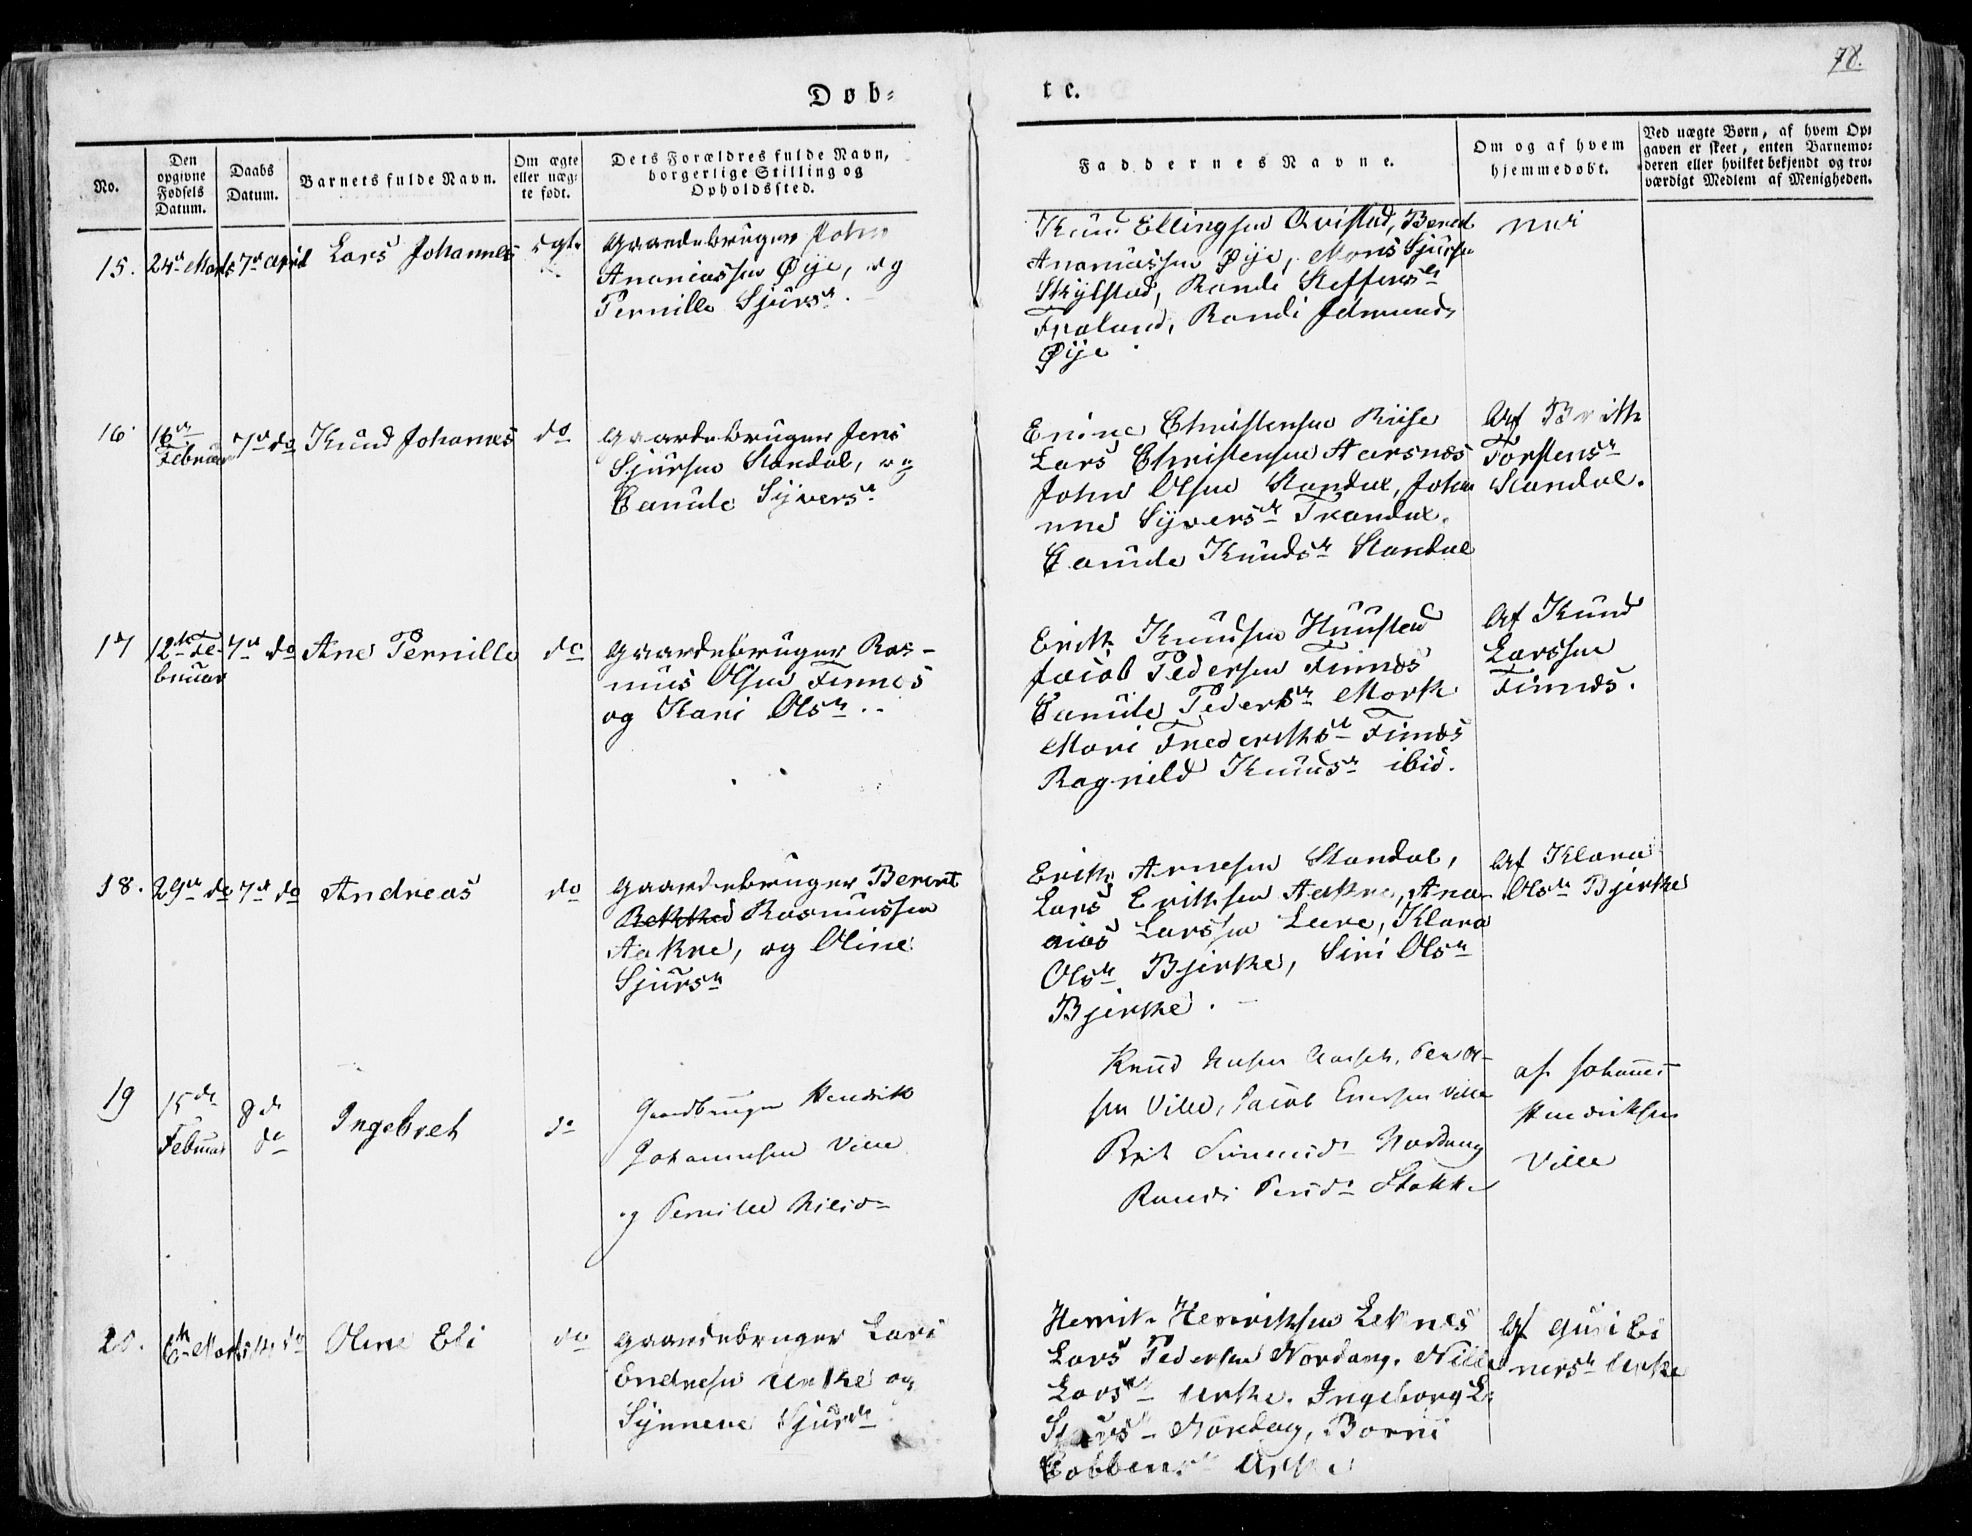 78.
Døb-
te.
No.
Den
opgivne
Fødsels
Datum.
Daabs
Datum.
Barnets fulde Navn.
Om ægte
eller uæg-
te født.
Dets Forældres fulde Navn,
borgerlige Stilling og
Opholdssted.
Faddernes Navne.
Om og af hvem
hjemmedøbt.
Ved uægte Børn, af hvem Op-
gaven er skeet, enten Barnemo-
deren eller hvilket bekjendt og tro-
værdigt Medlem af Menigheden.
15.
24de Marts
7de April
Lars Johannes
Gaardebruger John
Ananiassen Øye, og
Pernille Sjursdr.
Knud Ellingsen Qvistad, Berndt
Ananiassen Øye, Mons Sjursen
Skylstad, Rande Steffensdr
Frøland, Randi Edmunds
Øye.
16
16de
Februar
7de do
Knud Johannes
do
Gaardebruger Jens
Sjursen Standal, og
Canute Syversdr
Christensen Riise
Lars Christensen Aarsnæs
John Olsen Standal, Johan
nne Syversdr Trandal.
Canute Knudsdr Standal
Af Brith
Torstensdr
Standal.
17
12te Fe-
bruar
7de do
Ane Pernille
do
Gaardebruger Ras-
mus Olsen Finnes
og Kari Olsdr.
Erik Knudsen Hunstad
Jacob Pedersen Finnæs
Canute Pedersdr Mork
Mari Frederiksdr Finnæs
Ragnild Knudsdr ibid.
Af Knud
Larssen
Finnæs.
18.
29de do
7de do
Andreas
do
Gaardebruger Berent
Rasmussen
Aakre, og Oline
Sjursdr
Erik Arnesen Standal,
Lars Eriksen Aakre, Ana-
nias Larssen Leere, Klara
Olsdr Bjerke, Siri Olsdr
Bjerke.
Af Klara
Olsdr Bjerke
19
15de
Februar
8de
do
Ingebret
do
Gaardbruger Hendrik
Johannesen Ville
og Pernille
Knud
sen Ville, Jacob Ville
Brit Nordang
Randi Stokke
af Johannes
Hendriksen
Ville
20.
Marts
do
Oline Eli
do
Gaardebruger Lars
Endresen Urke og
Synneve Sjursdr
Henrik Henriksen Leknes
Lars Pedersen Nordang. Nille
Larsdr Urke. Ingeborg L.
Nordang, Borni
Urke
Af Guri Ei
nersdr Urke